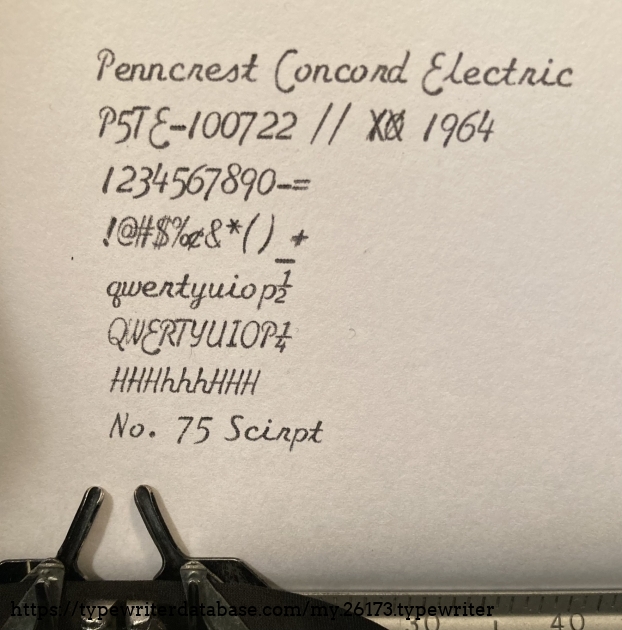 Penncrest Concord Electric
P5TE-100722 // 1964
1234567890-=
!@#$%¢&*()_+
qwertyuiop½
QWERTYUIOP¼
HHHhhhHHH
No. 75 Scirpt
https://typewriterdatabase.com/my.26173.typewriter
30 40